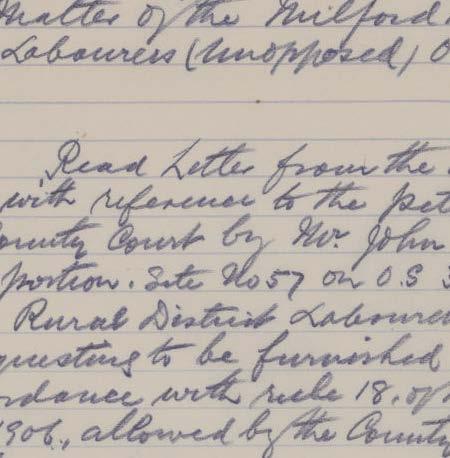 Matter of the Milford
Labourers (Unopposed) O
Read Letter from the
with reference to the Pet
County Court by Mr. John
portion. Site No 57 on O.S 3
Rural District Laboure
questing to be furnished
rdance with rule 18. of
1906., allowed by the County